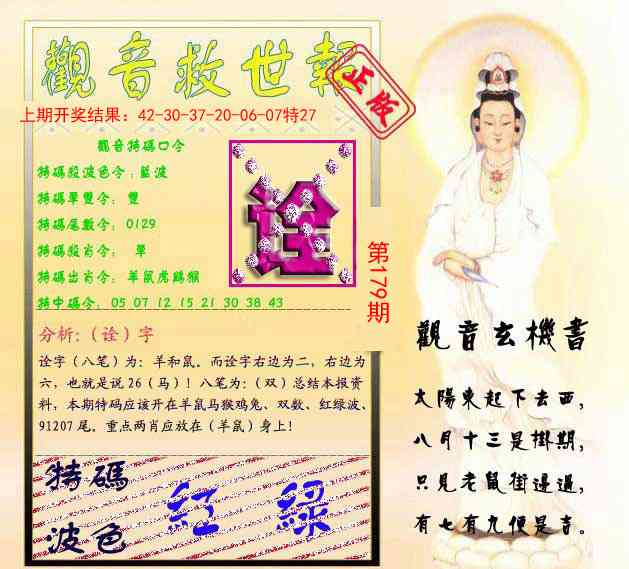 觀音救世報
正版
上期开奖结果：42-30-37-20-06-07特27
觀音特碼口令
特碼殺波色令：藍波
特碼單雙令： 雙
特碼尾數令： 0129
特碼殺肖令： 單
特碼出肖令：羊鼠虎鷄猴
特中碼令： 05 07 12 15 21 30 38 43
诠
第179期
分析：（诠）字
诠字（八笔）为：羊和鼠。而诠字右边为二，右边为
六，也就是说 26（马）！八笔为：（双）总结本报资
料，本期特码应该开在羊鼠马猴鸡兔、双数、红绿波、
91207 尾。重点两肖应放在（羊鼠）身上！
特碼
波色
紅 綠
觀音玄機書
太陽東起下去西，
八月十三是掛期，
只見老鼠街邊過，
有七有九便是吉。